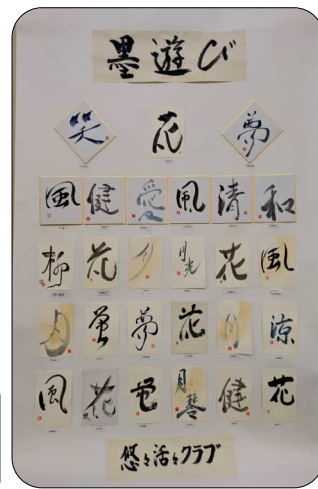 墨遊び
笑 花 夢
風 健 愛 風 清 和
柳 花 月 月光 花 風
月 蛍 夢 花 月 涼
風 花 色 月琴 健 花
悠々活々クラブ